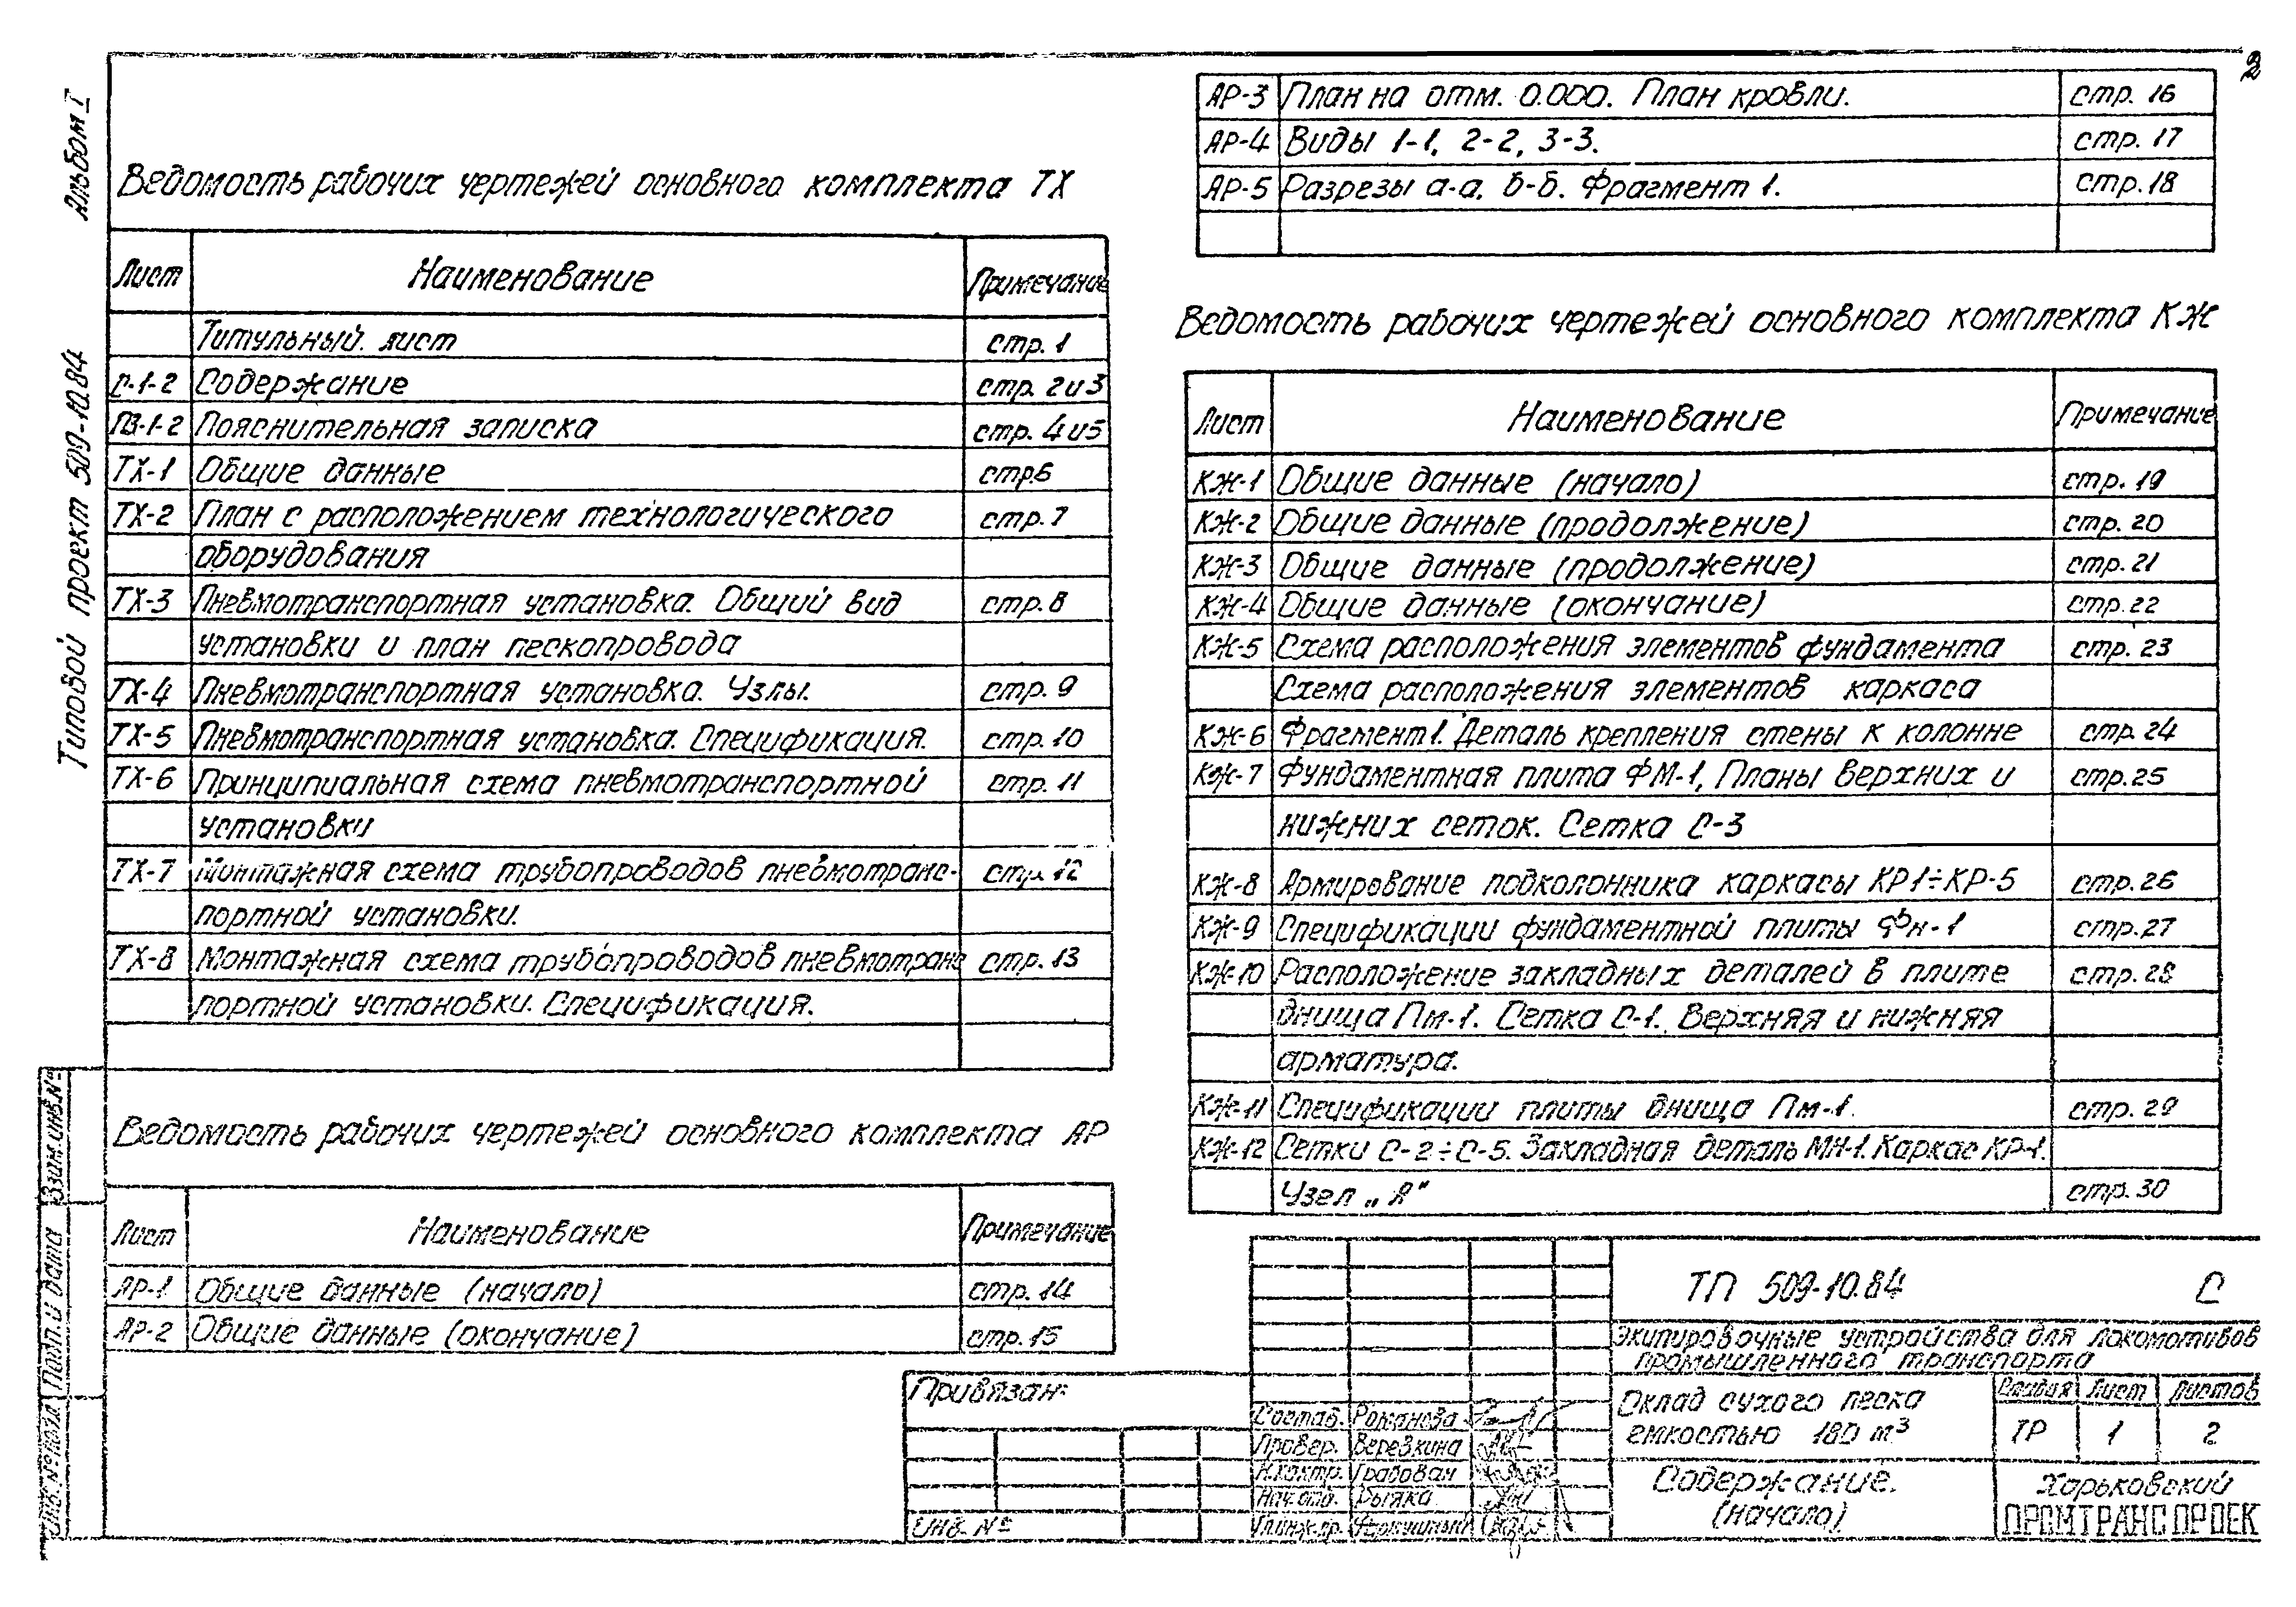 2
Альбом I
Типовой проект 509-10.84
Ведомость рабочих чертежей основного комплекта ТХ
Лист Наименование Примечание
Титульный лист стр. 1
С-1-2 Содержание стр. 2 и 3
ПЗ-1-2 Пояснительная записка стр. 4 и 5
ТХ-1 Общие данные стр.6
ТХ-2 План с расположением технологического стр. 7
оборудования
ТХ-3 Пневмотранспортная установка. Общий вид стр. 8
установки и план пескопровода
ТХ-4 Пневмотранспортная установка. Узлы. стр. 9
ТХ-5 Пневмотранспортная установка. Спецификация. стр. 10
ТХ-6 Принципиальная схема пневмотранспортной стр. 11
установки
ТХ-7 Монтажная схема трубопроводов пневмотранс- стр. 12
портной установки.
ТХ-8 Монтажная схема трубопроводов пневмотранс стр. 13
портной установки. Спецификация.
Ведомость рабочих чертежей основного комплекта АР
Лист Наименование Примечание
АР-1 Общие данные (начало) стр. 14
АР-2 Общие данные (окончание) стр. 15
АР-3 План на отм. 0.000. План кровли. стр. 16
АР-4 Виды 1-1, 2-2, 3-3. стр. 17
АР-5 Разрезы а-а, б-б. Фрагмент 1. стр. 18
Ведомость рабочих чертежей основного комплекта КЖ
Лист Наименование Примечание
КЖ-1 Общие данные (начало) стр. 19
КЖ-2 Общие данные (продолжение) стр. 20
КЖ-3 Общие данные (продолжение) стр. 21
КЖ-4 Общие данные (окончание) стр. 22
КЖ-5 Схема расположения элементов фундамента стр. 23
Схема расположения элементов каркаса
КЖ-6 Фрагмент 1. Деталь крепления стены к колонне стр. 24
КЖ-7 Фундаментная плита ФМ-1, Планы верхних и стр. 25
нижних сеток. Сетка С-3
КЖ-8 Армирование подколонника каркасы КР1÷КР-5 стр. 26
КЖ-9 Спецификации фундаментной плиты Фн-1 стр. 27
КЖ-10 Расположение закладных деталей в плите стр. 28
днища Пм-1. Сетка С-1. Верхняя и нижняя
арматура.
КЖ-11 Спецификации плиты днища Пм-1. стр. 29
КЖ-12 Сетки С-2÷С-5. Закладная деталь МН-1. Каркас КР-1.
Узел „А" стр. 30
Взам.инв.№
Подп. и дата
Инв. № подл
Привязан:
Инв. №
Состав. Романова
Провер. Верезкина
Н.контр. Грабован
Нач.отд. Рыжка
Гл.инж.пр.
ТП 509-10.84 С
Экипировочные устройства для локомотивов
промышленного транспорта
Склад сухого песка
емкостью 180 м³
Стадия Лист Листов
ТР 1 2
Содержание.
(начало)
Харьковский
ПРОМТРАНСПРОЕК